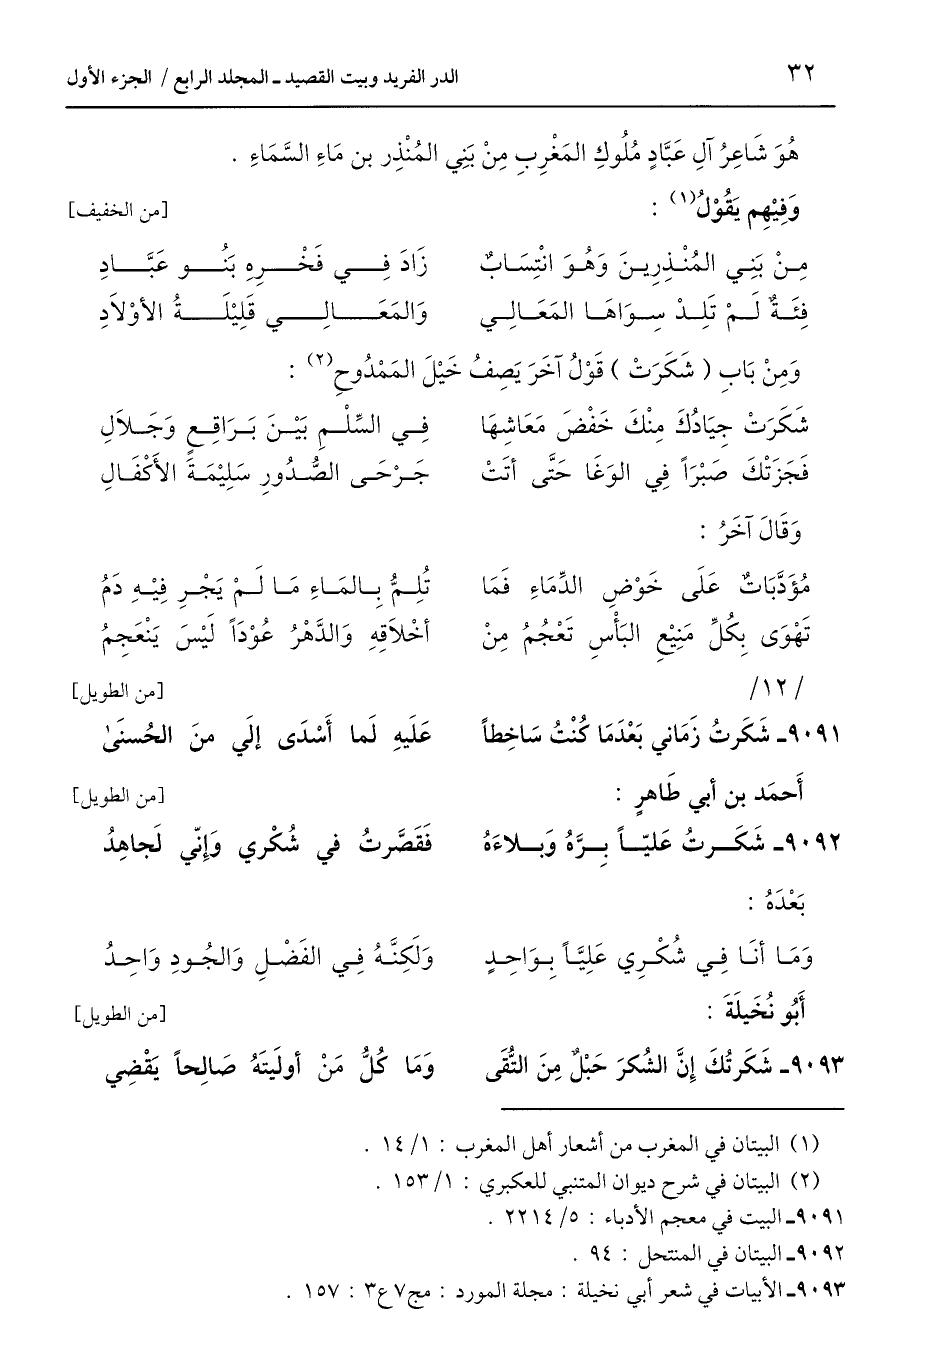 ٣٢ الدر الفريد وبيت القصيد ـ المجلد الرابع / الجزء الأول
هُوَ شَاعِرُ آلِ عَبَّادٍ مُلُوكِ المَغْرِبِ مِنْ بَنِي المُنْذِرِ بن مَاءِ السَّمَاءِ .
وَفِيْهِم يَقُوْلُ(١) : [من الخفيف]
مِنْ بَنِي المُنْذِرِينَ وَهُوَ انْتِسَابٌ زَادَ فِي فَخْرِهِ بَنُو عَبَّادِ
فِئَةٌ لَمْ تَلِدْ سِوَاهَا المَعَالِي وَالمَعَالِي قَلِيْلَةُ الأوْلَادِ
وَمِنْ بَابِ ( شَكَرَتْ ) قَوْلُ آخَرَ يَصِفُ خَيْلَ المَمْدُوحِ(٢) :
شَكَرَتْ جِيَادُكَ مِنْكَ خَفْضَ مَعَاشِهَا فِي السِّلْمِ بَيْنَ بَرَاقِعٍ وَجَلَالِ
فَجَزَتْكَ صَبْرَاً فِي الوَغَا حَتَّى أتَتْ جَرْحَى الصُّدُورِ سَلِيْمَةَ الأكْفَالِ
وَقَالَ آخَرُ :
مُؤَدَّبَاتٌ عَلَى خَوْضِ الدِّمَاءِ فَمَا تُلِمُّ بِالمَاءِ مَا لَمْ يَجْرِ فِيْهِ دَمُ
تَهْوَى بِكُلِّ مَنِيْعِ البَأْسِ تَعْجُمُ مِنْ أخْلَاقِهِ وَالدَّهْرُ عُوْدَاً لَيْسَ يَنْعَجِمُ
/ ١٢/ [من الطويل]
٩٠٩١ـ شَكَرتُ زَمَاني بَعْدَمَا كُنْتُ سَاخِطاً عَلَيهِ لَما أَسْدَى إلَي منَ الحُسنَىٰ
أَحمَد بن أبي طَاهرٍ : [من الطويل]
٩٠٩٢ـ شَكَرتُ عَليّاً بِرَّهُ وَبلاءَهُ فَقَصَّرتُ في شُكْري وَإنّي لَجاهِدُ
بَعْدَهُ :
وَمَا أنَا فِي شُكْرِي عَلِيَّاً بِوَاحِدٍ وَلَكِنَّهُ فِي الفَضْلِ وَالجُودِ وَاحِدُ
أَبُو نُخَيلَةَ : [من الطويل]
٩٠٩٣ـ شَكَرتُكَ إِنَّ الشُكرَ حَبْلٌ مِنَ التُّقَى وَمَا كُلُّ مَنْ أولَيتَهُ صَالِحاً يَقْضِي
(١) البيتان في المغرب من أشعار أهل المغرب : ١/ ١٤ .
(٢) البيتان في شرح ديوان المتنبي للعكبري : ١/ ١٥٣ .
٩٠٩١ـ البيت في معجم الأدباء : ٥/ ٢٢١٤ .
٩٠٩٢ـ البيتان في المنتحل : ٩٤ .
٩٠٩٣ـ الأبيات في شعر أبي نخيلة : مجلة المورد : مج٧ع٣ : ١٥٧ .